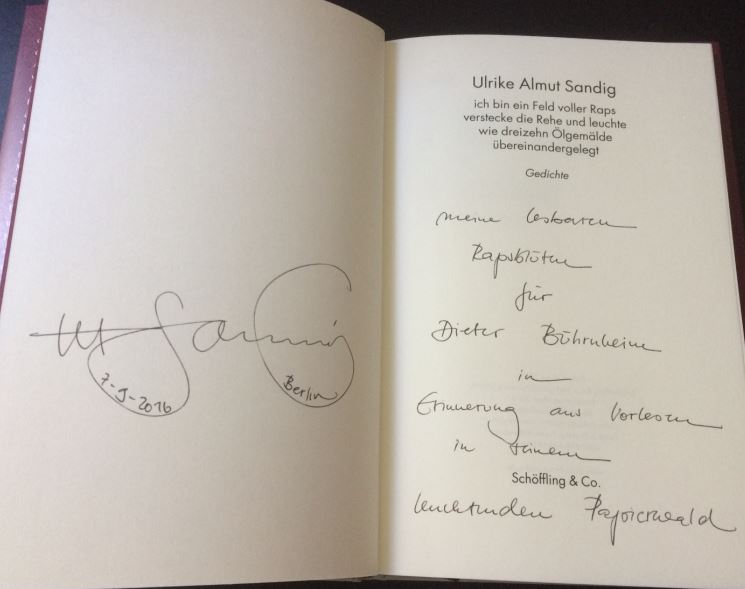 7-9-2016
Berlin
Ulrike Almut Sandig
ich bin ein Feld voller Raps
verstecke die Rehe und leuchte
wie dreizehn Ölgemälde
übereinandergelegt
Gedichte
meine lesbaren
Rapsblüten
für
Dieter
in
Erinnerung ans Vorlesen
in seinem
Schöffling & Co.
leuchtenden Papierwald